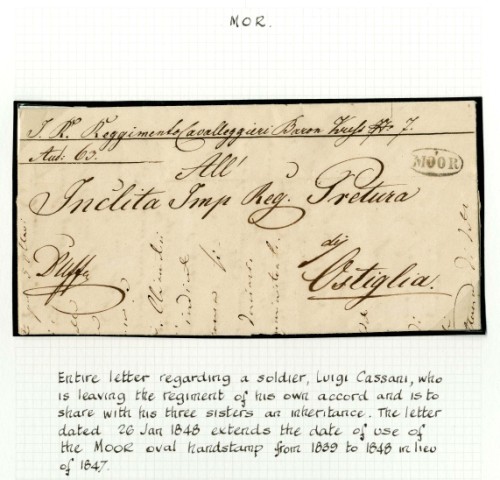 MOR.
I. R. Reggimento Cavalleggieri Baron Kress No 7.
Aud: 63.
MOOR
All'
Inclita Imp Reg. Pretura
di
D'Uff
Ostiglia.
Entire letter regarding a soldier, Luigi Cassani, who
is leaving the regiment of his own accord and is to
share with his three sisters an inheritance. The letter
dated 26 Jan 1848 extends the date of use of
the MOOR oval handstamp from 1839 to 1848 in lieu
of 1847.